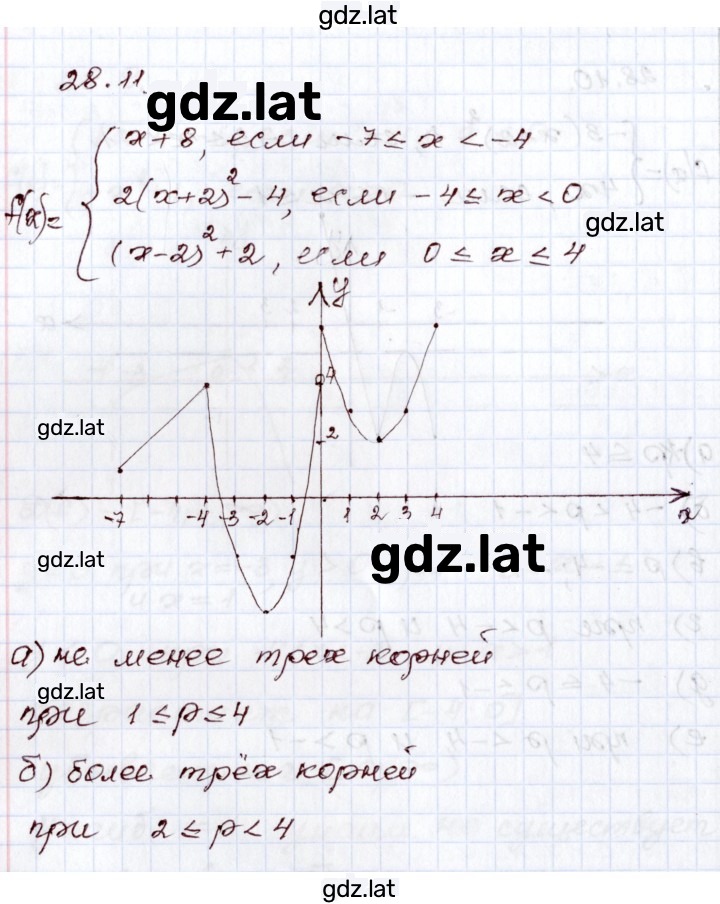 gdz.lat
28.11.
gdz.lat
f(x)= { x+8, если -7≤x<-4
2(x+2)²-4, если -4≤x<0
gdz.lat
(x-2)²+2, если 0≤x≤4
y
4
gdz.lat
2
-7 -4 -3 -2 -1 1 2 3 4 x
gdz.lat
gdz.lat
а) не менее трех корней
gdz.lat
при 1≤p≤4
б) более трёх корней
при 2≤p<4
gdz.lat